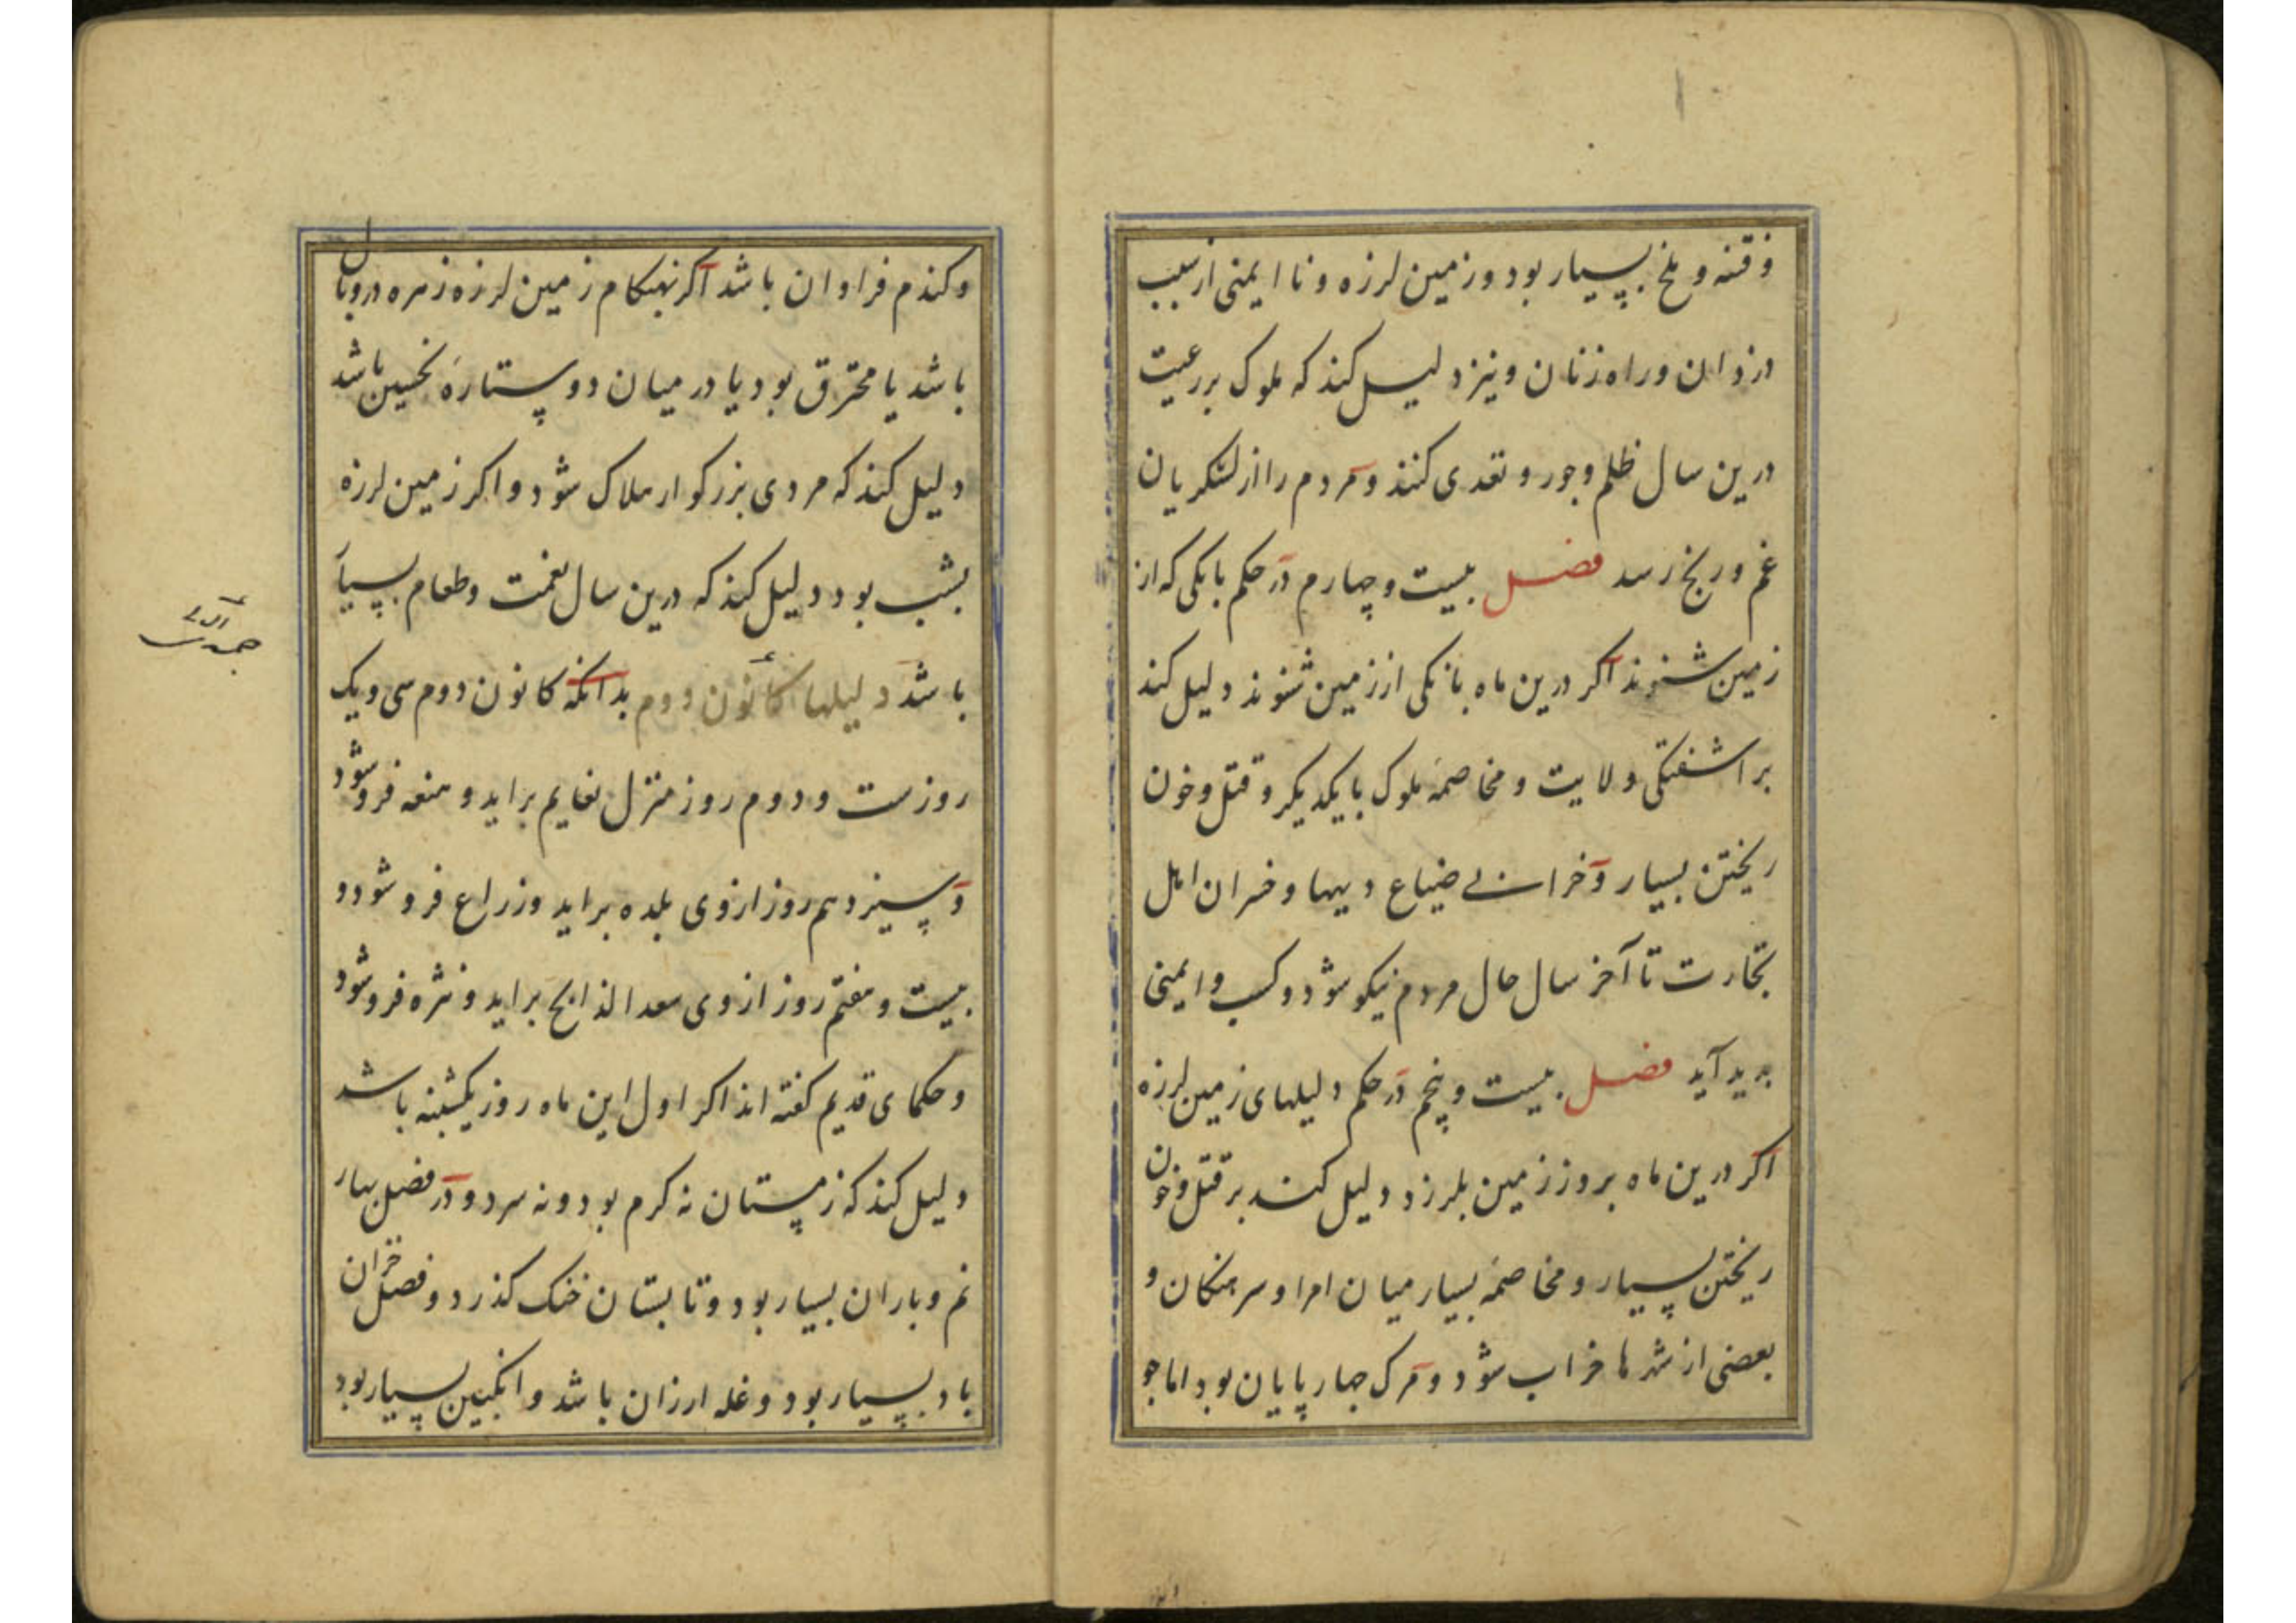 و فتنه و ملخ بسیار بود و زمین لرزه و نا ایمنی از سبب
دزدان و راه زنان و نیز دلیل کند که ملوک بر رعیت
درین سال ظلم و جور و تعدی کنند و مردم را از لشکریان
غم و رنج رسد فصل بیست و چهارم در حکم بانکی که از
زمین شنوند اکر درین ماه بانکی از زمین شنوند دلیل کند
بر اشفتکی ولایت و مخاصمهٔ ملوک با یکدیکر و قتل و خون
ریختن بسیار و خرابی ضیاع و دیهها و خسران اهل
تجارت تا آخر سال حال مردم نیکو شود و کسب و ایمنی
بدید آید فصل بیست و پنجم در حکم دلیلهای زمین لرزه
اکر درین ماه بروز زمین بلرزد دلیل کند بر قتل و خون
ریختن بسیار و مخاصمهٔ بسیار میان امرا و سرهنکان و
بعضی از شهرها خراب شود و مرک چهار پایان بود اما جو
و کندم فراوان باشد اکر بهنکام زمین لرزه زهره در وبال
باشد یا محترق بود یا در میان دو ستارهٔ نحسین باشد
دلیل کند که مردی بزرکوار هلاک شود و اکر زمین لرزه
بشب بود دلیل کند که درین سال نعمت و طعام بسیار
باشد دلیلها کانون دوم بدانکه کانون دوم سی و یک
روزست و دوم روز منزل نعایم براید و هنعه فرو شود
و سیزدهم روز ازوی بلده براید و زراع فرو شود و
بیست و هفتم روز ازوی سعد الذابح براید و نثره فرو شود
و حکمای قدیم کفته اند اکر اول این ماه روز یکشنبه باشد
دلیل کند که زمستان نه کرم بود و نه سرد و در فصل بهار
نم و باران بسیار بود و تابستان خنک کذرد و فصل خزان
باد بسیار بود و غله ارزان باشد و انکبین بسیار بود